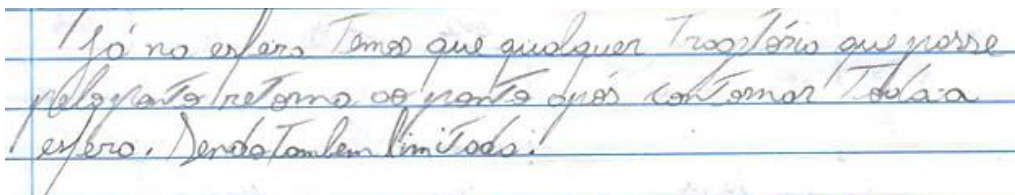 Já na esfera Temos que qualquer Tragetória que passe
pelo ponto retorna ao ponto após contornar Toda a
esfera. Sendo Tambem limitada.